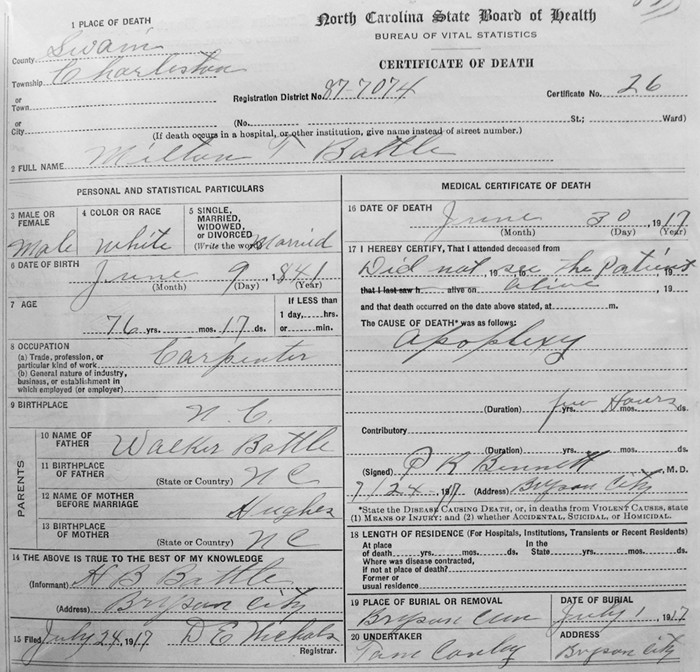 North Carolina State Board of Health
BUREAU OF VITAL STATISTICS
CERTIFICATE OF DEATH
1 PLACE OF DEATH
County Swain
Township Charleston
or
Town
or
City
Registration District No. 87-7074 Certificate No. 26
(No. St.; Ward)
(If death occurs in a hospital, or other institution, give name instead of street number.)
2 FULL NAME Milton T Battle
PERSONAL AND STATISTICAL PARTICULARS
3 MALE OR FEMALE Male
4 COLOR OR RACE White
5 SINGLE, MARRIED, WIDOWED, OR DIVORCED (Write the word) Married
6 DATE OF BIRTH June 9, 1841
(Month) (Day) (Year)
7 AGE 76 yrs. mos. 17 ds.
If LESS than 1 day, hrs. or min.
8 OCCUPATION Carpenter
(a) Trade, profession, or particular kind of work
(b) General nature of industry, business, or establishment in which employed (or employer)
9 BIRTHPLACE N.C.
PARENTS
10 NAME OF FATHER Walker Battle
11 BIRTHPLACE OF FATHER (State or Country) NC
12 NAME OF MOTHER BEFORE MARRIAGE Hughes
13 BIRTHPLACE OF MOTHER (State or Country) NC
14 THE ABOVE IS TRUE TO THE BEST OF MY KNOWLEDGE
(Informant) H B Battle
(Address) Bryson City
15 Filed July 24, 1917 D E Nichols
Registrar.
MEDICAL CERTIFICATE OF DEATH
16 DATE OF DEATH June 30, 1917
(Month) (Day) (Year)
17 I HEREBY CERTIFY, That I attended deceased from
Did not, 19 see the Patient, 19
that I last saw h alive on alive, 19
and that death occurred on the date above stated, at m.
The CAUSE OF DEATH* was as follows:
Apoplexy
(Duration) few Hours yrs. mos. ds.
Contributory
(Duration) yrs. mos. ds.
(Signed) P R Bennett, M.D.
7/24 1917 (Address) Bryson City
*State the DISEASE CAUSING DEATH, or, in deaths from VIOLENT CAUSES, state (1) MEANS OF INJURY; and (2) whether ACCIDENTAL, SUICIDAL, or HOMICIDAL.
18 LENGTH OF RESIDENCE (For Hospitals, Institutions, Transients or Recent Residents)
At place of death yrs. mos. ds. In the State yrs. mos. ds.
Where was disease contracted, if not at place of death?
Former or usual residence
19 PLACE OF BURIAL OR REMOVAL Bryson Cem
DATE OF BURIAL July 1, 1917
20 UNDERTAKER
ADDRESS Bryson City